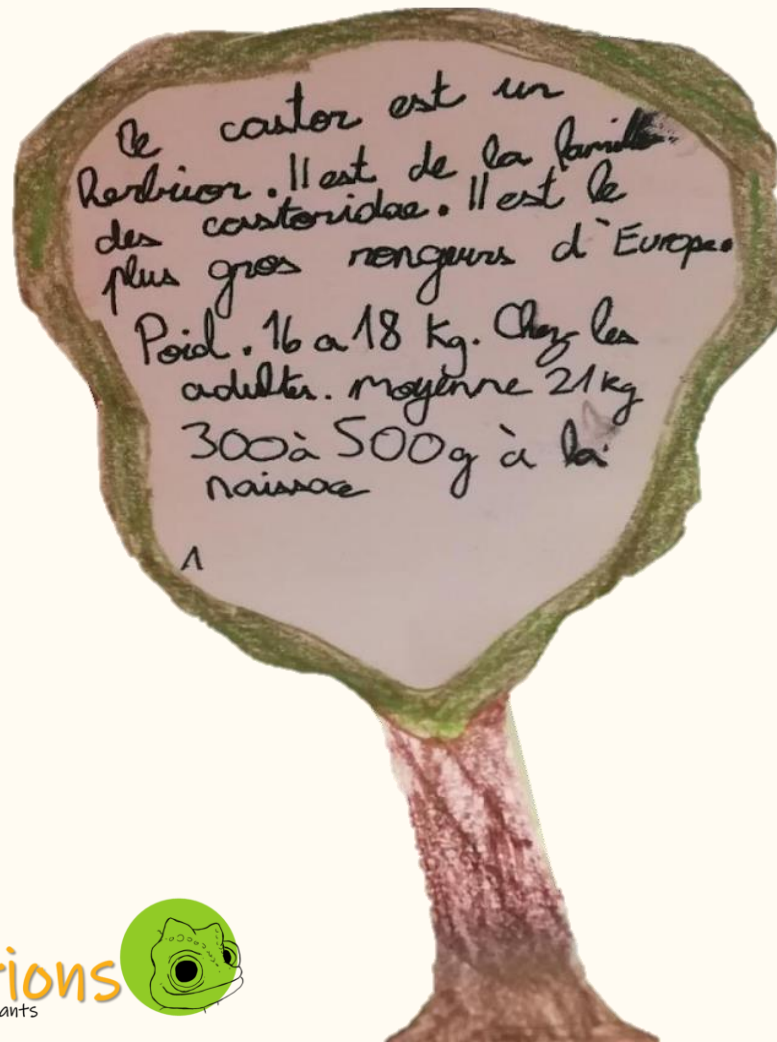 le castor est un
herbivor. Il est de la famille
des castoridae. Il est le
plus gros rongeurs d'Europe.
Poid. 16 a 18 Kg. Chez les
adultes. moyenne 21 kg
300 à 500g à la
naissace
1
tions
ants